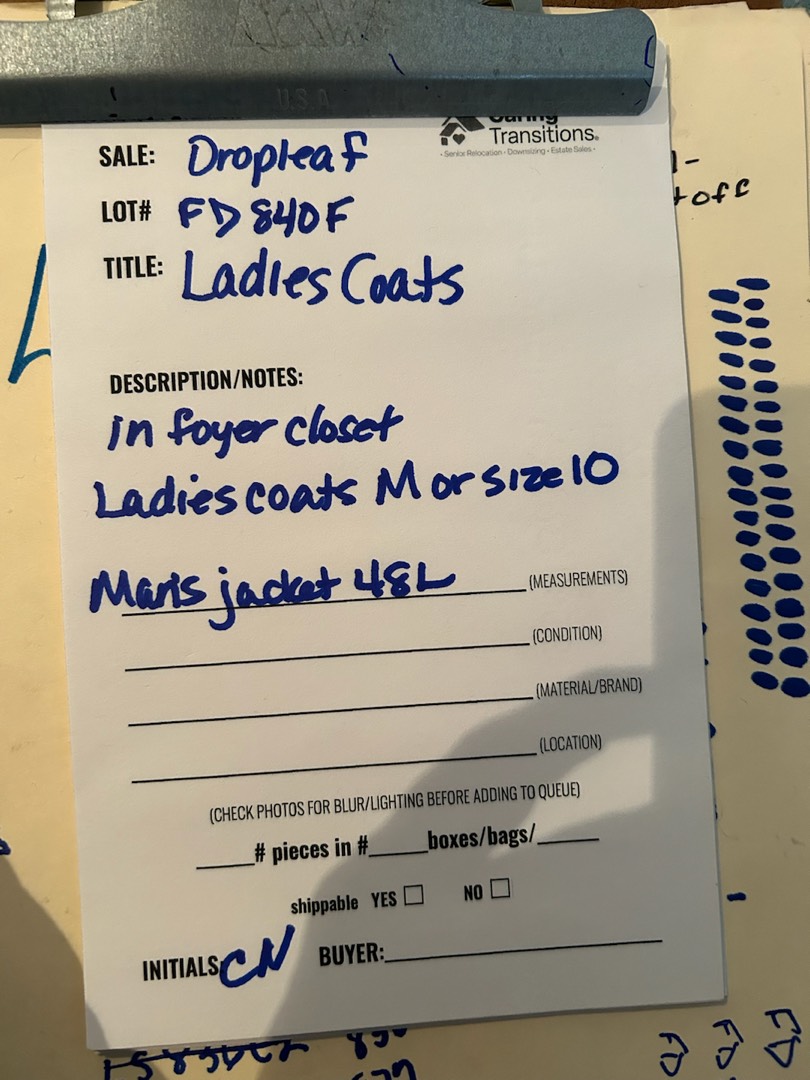 U.S.A
Caring
Transitions®
• Senior Relocation • Downsizing • Estate Sales •
SALE: Dropleaf
LOT# FD840F
TITLE: Ladies Coats
DESCRIPTION/NOTES:
in foyer closet
Ladies coats M or size 10
Mans jacket 48L (MEASUREMENTS)
(CONDITION)
(MATERIAL/BRAND)
(LOCATION)
(CHECK PHOTOS FOR BLUR/LIGHTING BEFORE ADDING TO QUEUE)
# pieces in # boxes/bags/
shippable YES NO
INITIALS CN BUYER: